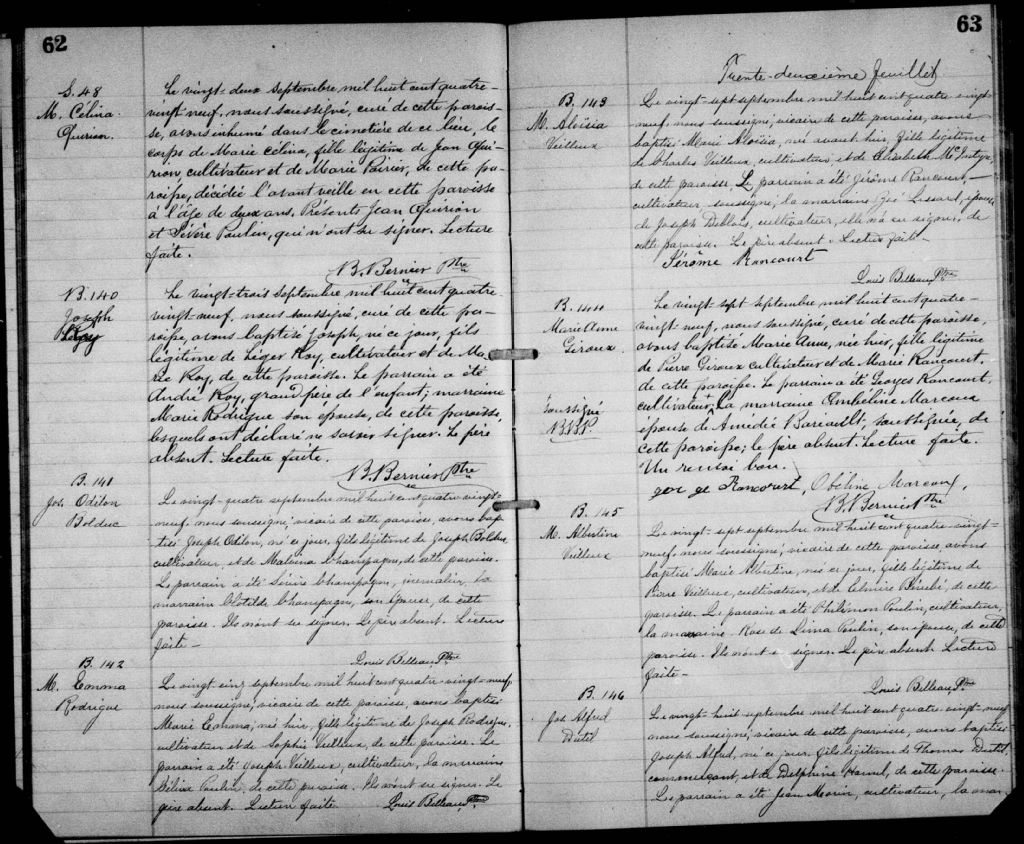 62
S. 48
M. Célina
Quirion.
Le vingt-deux septembre, mil huit cent quatre-
vingt-neuf, nous soussigné, curé de cette parois-
se, avons inhumé dans le cimetière de ce lieu, le
corps de Marie Célina, fille légitime de Jean Qui-
rion, cultivateur et de Marie Poirier, de cette pa-
roisse, décédée l'avant veille en cette paroisse
à l'âge de deux ans. Présents Jean Quirion
et Sévère Poulin, qui n'ont su signer. Lecture
faite.
B. Bernier Ptre
B. 140
Joseph
Roy
Le vingt-trois septembre mil huit cent quatre-
vingt-neuf, nous soussigné, curé de cette pa-
roisse, avons baptisé Joseph, né ce jour, fils
légitime de Léger Roy, cultivateur et de Ma-
rie Roy, de cette paroisse. Le parrain a été
André Roy, grand père de l'enfant; marraine
Marie Rodrigue son épouse, de cette paroisse,
lesquels ont déclaré ne savoir signer. Le père
absent. Lecture faite.
B. Bernier Ptre
B. 141
Jos. Odilon
Bolduc
Le vingt-quatre septembre mil huit cent quatre vingt-
neuf, nous soussigné, vicaire de cette paroisse, avons bap-
tisé Joseph Odilon, né ce jour, fils légitime de Joseph Bolduc
cultivateur, et de Malvina Champagne, de cette paroisse.
Le parrain a été Champagne, journalier, la
marraine Clotilde Champagne, son épouse, de cette
paroisse. Ils n'ont su signer. Le père absent. Lecture
faite-
Louis Belleau, Ptre
B. 142
M. Emma
Rodrigue
Le vingt cinq septembre mil huit cent quatre-vingt-neuf,
nous soussigné, vicaire de cette paroisse, avons baptisé
Marie Emma, née hier, fille légitime de Joseph Rodrigue,
cultivateur et de Sophie Veilleux, de cette paroisse. Le
parrain a été Joseph Veilleux, cultivateur, la marraine
Poulin, de cette paroisse. Ils n'ont su signer. Le
père absent. Lecture faite Louis Belleau, Ptre
63
Trente-deuxième feuillet
B. 143
M. Aloïsia
Veilleux
Le vingt-sept septembre mil huit cent quatre vingt-
neuf, nous soussigné, vicaire de cette paroisse, avons
baptisé Marie Aloïsia, née avant hier, fille légitime
de Charles Veilleux, cultivateur, et de Elisabeth McIntyre,
de cette paroisse. Le parrain a été Jérôme Rancourt,-
cultivateur soussigné, la marraine Lessard, épouse
de Joseph Deblois, cultivateur, elle n'a su signer, de
cette paroisse. Le père absent. Lecture faite-
Jérôme Rancourt
Louis Belleau, Ptre
B. 144
Marie Anne
Giroux.
Le vingt-sept septembre, mil huit cent quatre-
vingt-neuf, nous soussigné, curé de cette paroisse,
avons baptisé Marie Anne, née hier, fille légitime
de Pierre Giroux cultivateur et de Marie Rancourt.
de cette paroisse. Le parrain a été Georges Rancourt,
cultivateur, la marraine Ombéline Marcoux
épouse de Amédée Bariault, soussignée, de
cette paroisse; le père absent. Lecture faite.
Un renvoi bon.
soussigné
B.B.P.
george Rancourt, Obéline Marcoux,
B. Bernier Ptre
B. 145
M. Albertine
Veilleux
Le vingt-sept septembre mil huit cent quatre-vingt-
neuf, nous soussigné, vicaire de cette paroisse avons
baptisé Marie Albertine, née ce jour, fille légitime de
Pierre Veilleux, cultivateur, et de Elmire de cette
paroisse. Le parrain a été Philémon Poulin, cultivateur,
la marraine Rose de Lima Poulin, son épouse, de cette
paroisse. Ils n'ont su signer. Le père absent. Lecture
faite-
Louis Belleau, Ptre
B. 146
Jos Alfred
Dutil
Le vingt-huit septembre mil huit cent quatre vingt-neuf
nous soussigné, vicaire de cette paroisse, avons baptisé
Joseph Alfred, né ce jour, fils légitime de Thomas Dutil
commerçant, et de Delphine Hamel, de cette paroisse.
Le parrain a été Jean Morin, cultivateur, la mar